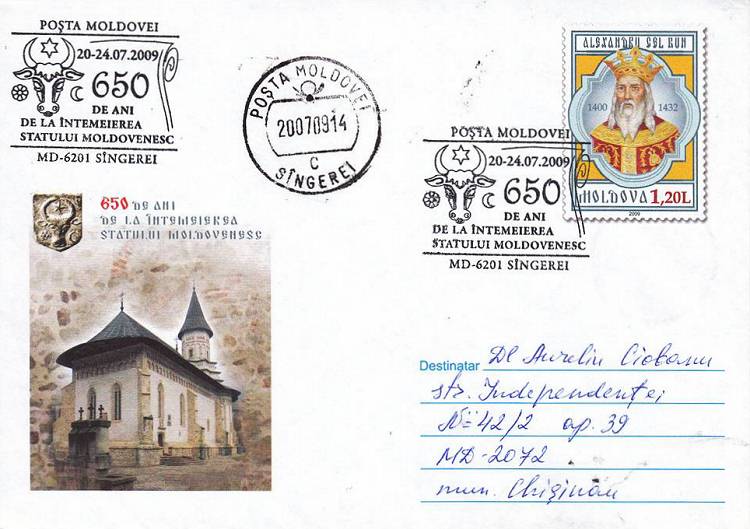 POȘTA MOLDOVEI
20-24.07.2009
650
DE ANI
DE LA ÎNTEMEIEREA
STATULUI MOLDOVENESC
MD-6201 SÎNGEREI
POȘTA MOLDOVEI
20070914
C
SÎNGEREI
ALEXANDRU CEL BUN
1400 1432
MOLDOVA 1,20L
2009
POȘTA MOLDOVEI
20-24.07.2009
650
DE ANI
DE LA ÎNTEMEIEREA
STATULUI MOLDOVENESC
MD-6201 SÎNGEREI
650 DE ANI
DE LA ÎNTEMEIEREA
STATULUI MOLDOVENESC
Destinatar Dl Aureliu Ciobanu
str. Independenței
N= 42/2 ap. 39
MD-2072
mun. Chișinău